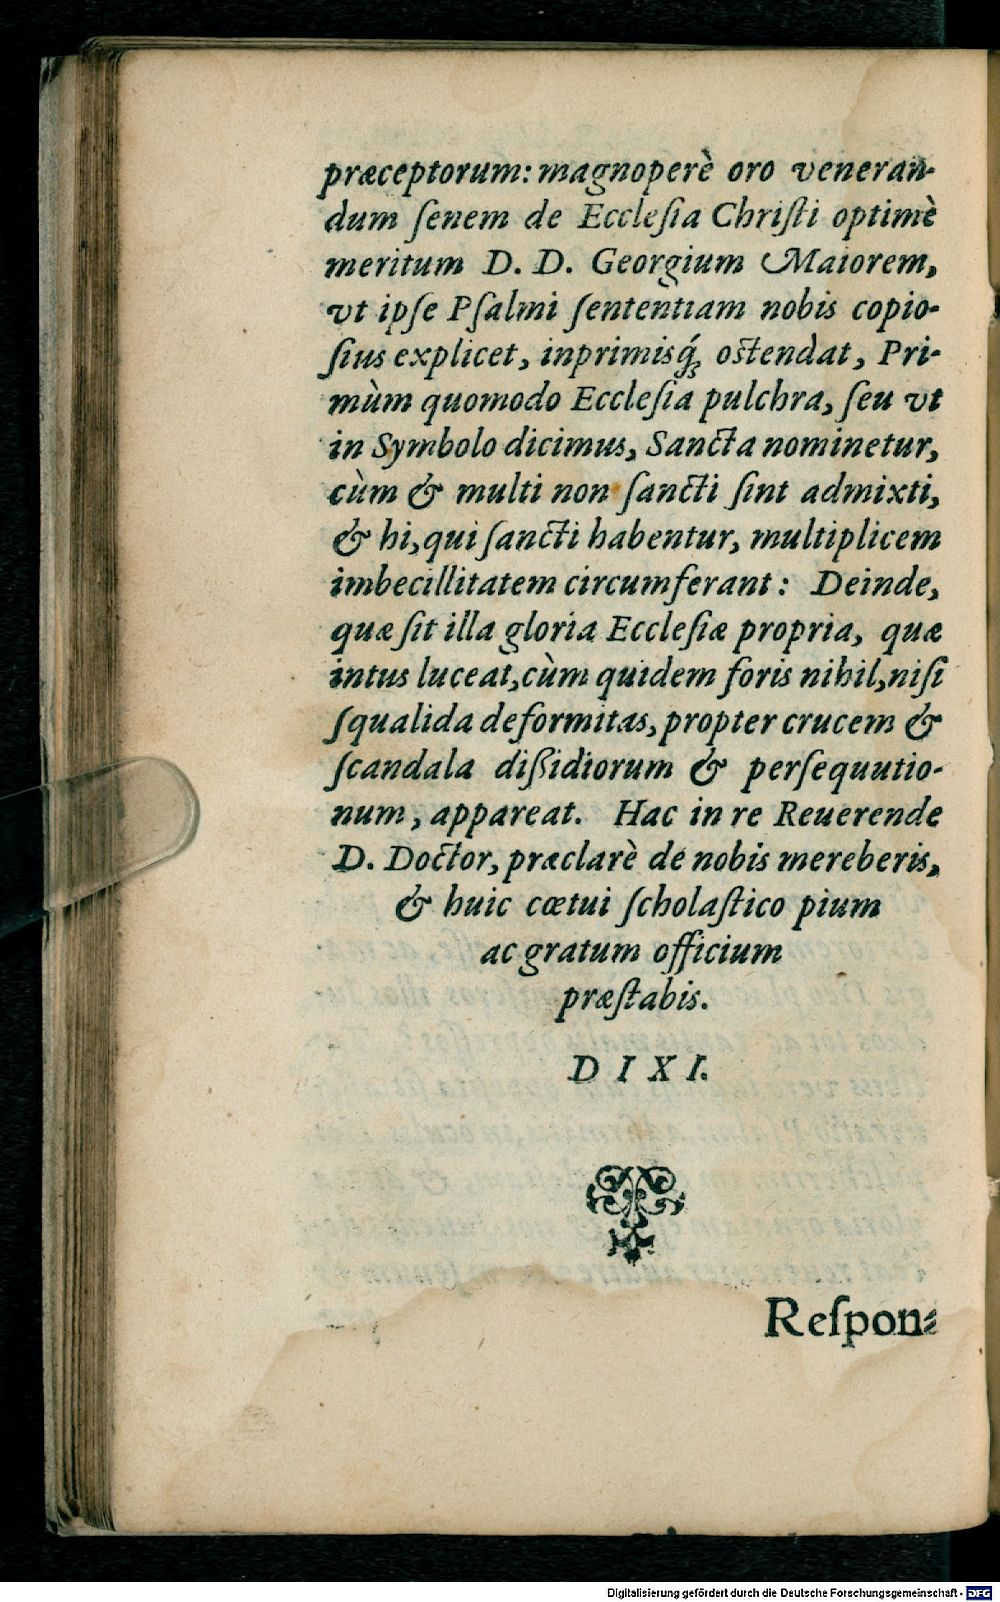 præceptorum: magnoperè oro veneran-
dum ſenem de Eccleſia Chriſti optimè
meritum D. D. Georgium Maiorem,
vt ipſe Pſalmi ſententiam nobis copio-
ſius explicet, inprimisq́ꝫ oſtendat, Pri-
mùm quomodo Eccleſia pulchra, ſeu vt
in Symbolo dicimus, Sancta nominetur,
cùm & multi non ſancti ſint admixti,
& hi, qui ſancti habentur, multiplicem
imbecillitatem circumferant: Deinde,
quæ ſit illa gloria Eccleſiæ propria, quæ
intus luceat, cùm quidem foris nihil, niſi
ſqualida deformitas, propter crucem &
ſcandala dißidiorum & perſequutio-
num, appareat. Hac in re Reuerende
D. Doctor, præclarè de nobis mereberis,
& huic cœtui ſcholaſtico pium
ac gratum officium
præſtabis.
D I X I.
Reſpon-
Digitalisierung gefördert durch die Deutsche Forschungsgemeinschaft - DFG